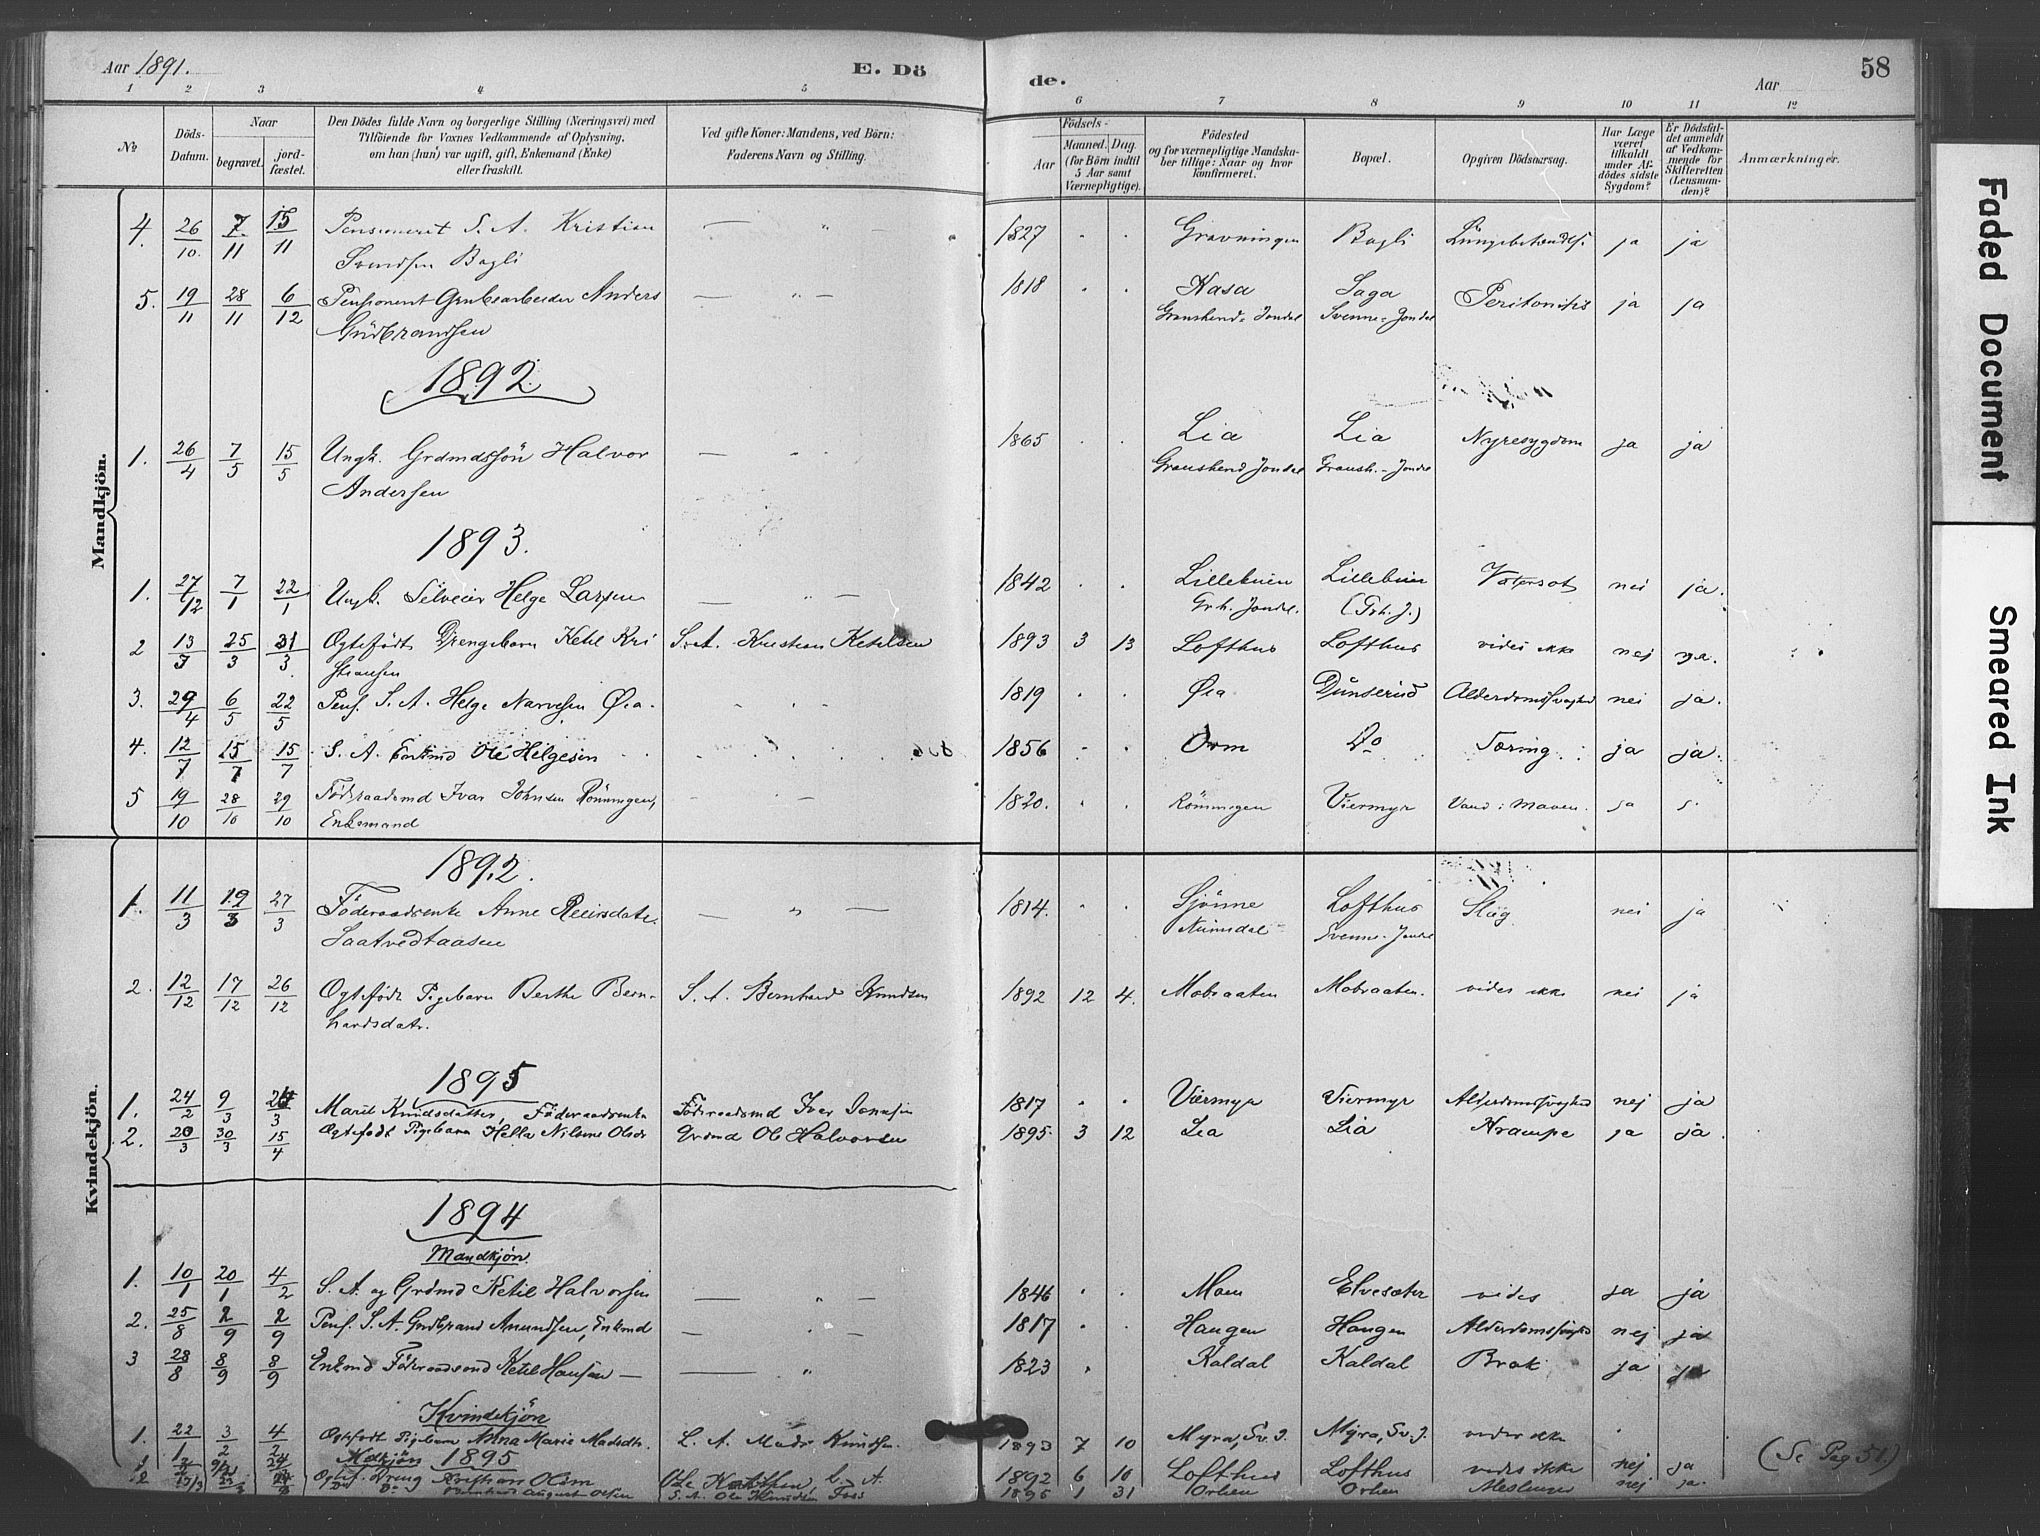 Aar 1891.
E. Dö
de.
Aar
58
1 2 3 4 5 6 7 8 9 10 11 12
No
Döds-Datum.
Naar
begravet.
jord-fæstet.
Den Dödes fulde Navn og borgerlige Stilling (Næringsvei) med
Tilföiende for Voxnes Vedkommende af Oplysning,
om han (hun) var ugift, gift, Enkemand (Enke)
eller fraskilt.
Ved gifte Koner: Mandens, ved Börn:
Faderens Navn og Stilling.
Födsels-
Aar
Maaned. Dag.
(for Börn indtil
5 Aar samt
Værnepligtige).
Födested
og for værnepligtige Mandska-
ber tillige: Naar og hvor
konfirmeret.
Bopæl.
Opgiven Dödsaarsag.
Har Læge
været
tilkaldt
under Af-
dödes sidste
Sygdom?
Er Dödsfal-
det anmeldt
af Vedkom-
mende for
Skifteretten
(Lensman-
den)?
Anmærkninger.
Mandkjön.
4. 26/10. 7/11 15/11 Pensioneret S. A. Kristian 1827 Gravningen Bagli ja ja
Svendsen Bagli
5. 19/11 28/11 6/12 Pensionert Grubearbeider Anders 1818 Kasa Saga Peritonitis ja ja
Gudbrandsen Granshend. Jondal Svenne-Jondal
1892.
1. 26/4 7/5 15/5 Ungk. Grdmdssön Halvor 1865 Lia Lia Nyresygdom ja ja
Andersen Granshend Jondal Gransh.-Jondl
1893.
1. 27/12 7/1 22/1 Ungk. Helge Larsen 1842 Lillebuien Lillebuien Vatersot nei ja.
Grh. Jondl. (Grh. J.)
2 13/3 25/3 31/3 Ogtefödt Drengebarn Ketil Kri S.A. Kristian Ketilsen 1893 3 13 Lofthus Lofthus vides ikke nej ja.
stiansen
3. 29/4 6/5 22/5 Pens. S. A. Helge Narvesen Øia. 1819 Øia Dunserud Alderdomssvaghed nei ja.
4. 12/7 15/7 15/7 S. A. Enkmd Ole Helgesen 1856 Orm Do Tæring ja ja.
5 19/10 28/10 29/10 Föderaadsmd Ivar Johnsen Rönningen, 1820. Rönningen Viermyr Vand i Maven. ja
Enkemand
Kvindekjön.
1892.
1. 11/3 19/3 27/3 Föderaadsenke Anne Reiersdatr. 1814. Sjönne Lofthus Slag nei ja
Saatvedtaasen Numedal Svenne-Jondl
2. 12/12 17/12 26/12 Ogtefödt Pigebarn Berthe Bern- S. A. Bernhard Knudsen 1892 12 4. Mobraaten Mobraaten. vides ikke nei ja
hardsdatr.
1895
1. 24/2 9/3 /3 Marit Knudsdatter, Föderaadsenke Föderaadsmd Iver Jonsen 1817 Viermyr Viermyr Alderdomssvaghed nej ja
2. 20/3 30/3 15/4 Ogtefödt Pigebarn Hella Nilsine Olsdr Grdmd Ol Halvorsen 1895. 3 12 Lia Lia Krampe ja ja
1894
Mandkjön
1. 10/1 20/1 4/2 S. A. og Grdmd Ketil Halvorsen 1846 Moen Elvesæter vides ja ja
2. 25/8 2/9 2/9 Pens. S. A. Gudbrand Amundsen, Enkmd 1817 Haugen Haugen Alderdomssvaghed nej ja
3 28/8 8/9 8/9 Enkmd Föderaadsmd Ketil Hansen 1823 Kaldal Kaldal Brok ja ja
Kvindekjön
1. 22/1 3/2 4/2 Ogtefödt Pigebarn Anna Marie Madsdtr. S. A. Mads Knudsen. 1893 7 10 Myra, Sv. J. Myra, Sv. J. vides ikke
Mdkjön 1895
Ogtef. Dreng Kristian Olsen Ole S. A. 1892 6 10 Lofthus Lofthus vides ikke nej ja (Se Pag 51.)
2 Do Do Bernhard August Olsen S. A. Ole Knudsen Foss 1895 1 31 Orhen Orhen Meslinger nej ja.
Faded Document
Smeared Ink